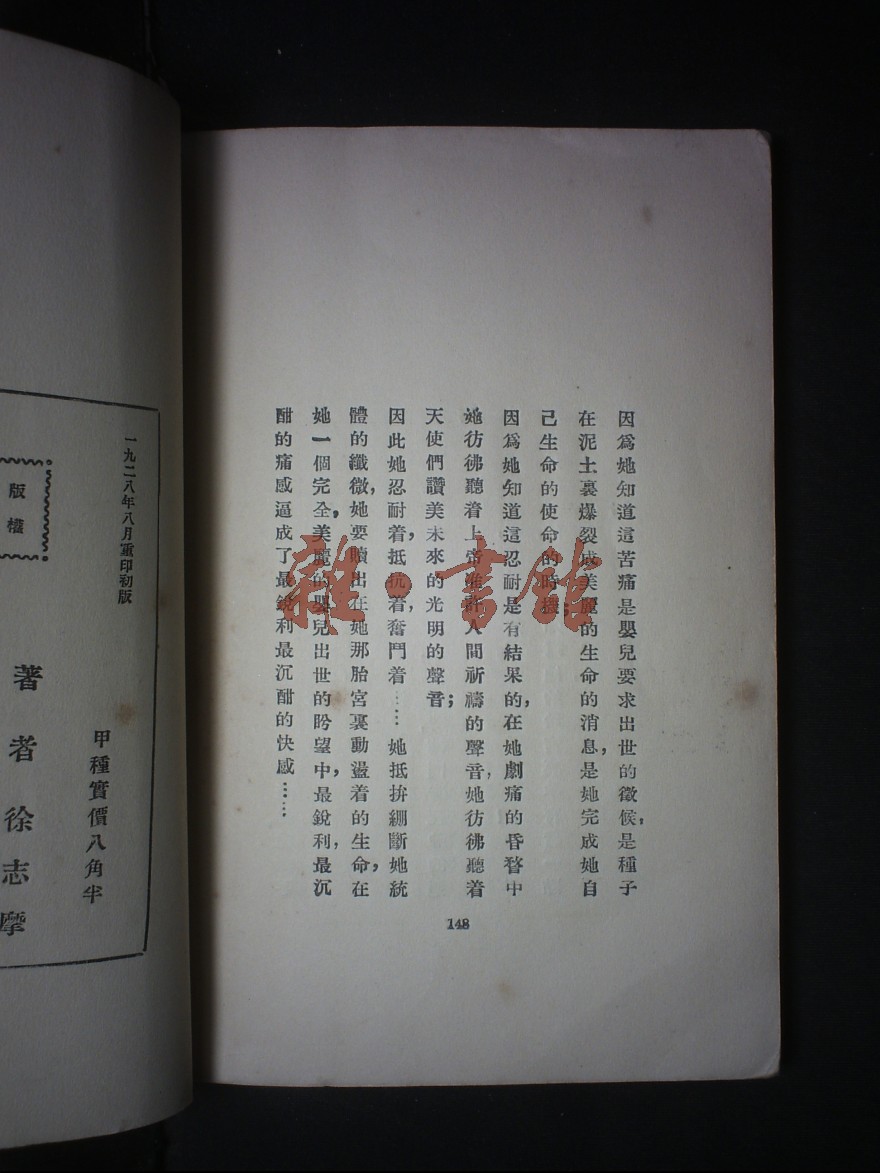 因爲她知道這苦痛是嬰兒要求出世的徵候,是種子
在泥土裏爆裂成美麗的生命的消息,是她完成她自
己生命的使命的時機;
因爲她知道這忍耐是有結果的,在她劇痛的昏瞀中
她彷彿聽着上帝准許人間祈禱的聲音,她彷彿聽着
天使們讚美未來的光明的聲音;
因此她忍耐着,抵抗着,奮鬥着…… 她抵拚綳斷她統
體的纖微,她要贖出在她那胎宮裏動盪着的生命,在
她一個完全,美麗的嬰兒出世的盼望中,最銳利,最沉
酣的痛感逼成了最銳利最沉酣的快感……
148
雜·書館
一九二八年八月重印初版
版權
甲種實價八角半
著者徐志摩